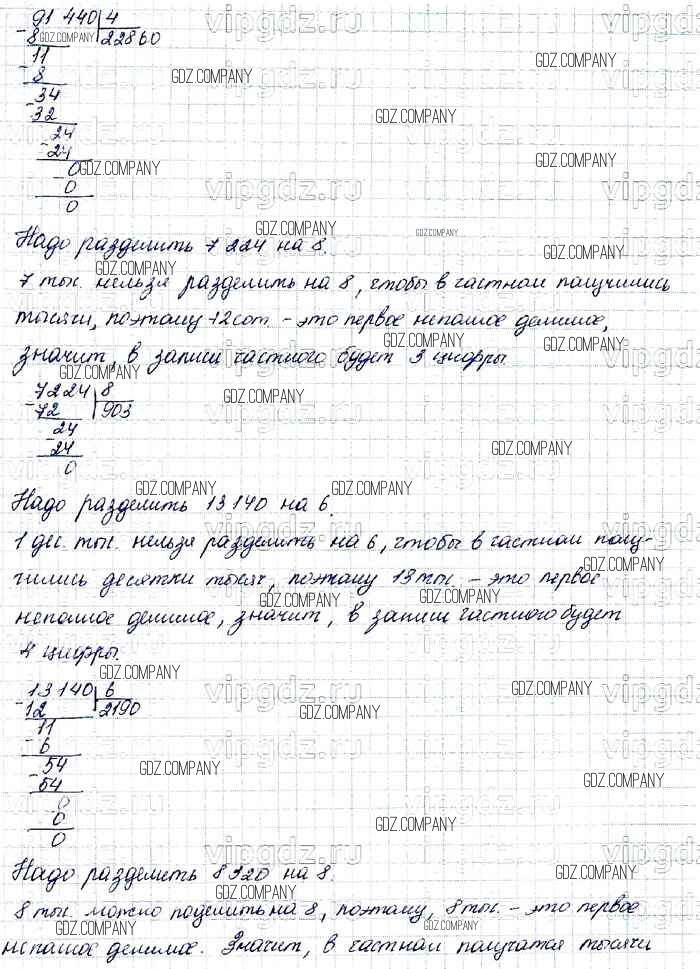 91 440 | 4
- 8 22860
11
- 8
34
- 32
24
- 24
- 0
0
0
Надо разделить 7 224 на 8.
7 тыс. нельзя разделить на 8, чтобы в частном получились
тысячи, поэтому 72 сот. - это первое неполное делимое,
значит, в записи частного будет 3 цифры.
7224 | 8
- 72 903
24
- 24
0
Надо разделить 13 140 на 6.
1 дес. тыс. нельзя разделить на 6, чтобы в частном полу-
чились десятки тысяч, поэтому 13 тыс. - это первое
неполное делимое, значит, в записи частного будет
4 цифры.
13 140 | 6
- 12 2190
11
- 6
54
- 54
0
- 0
0
Надо разделить 8 320 на 8.
8 тыс. можно поделить на 8, поэтому, 8 тыс. - это первое
неполное делимое. Значит, в частном получатся тысячи
GDZ.COMPANY
vipgdz.ru